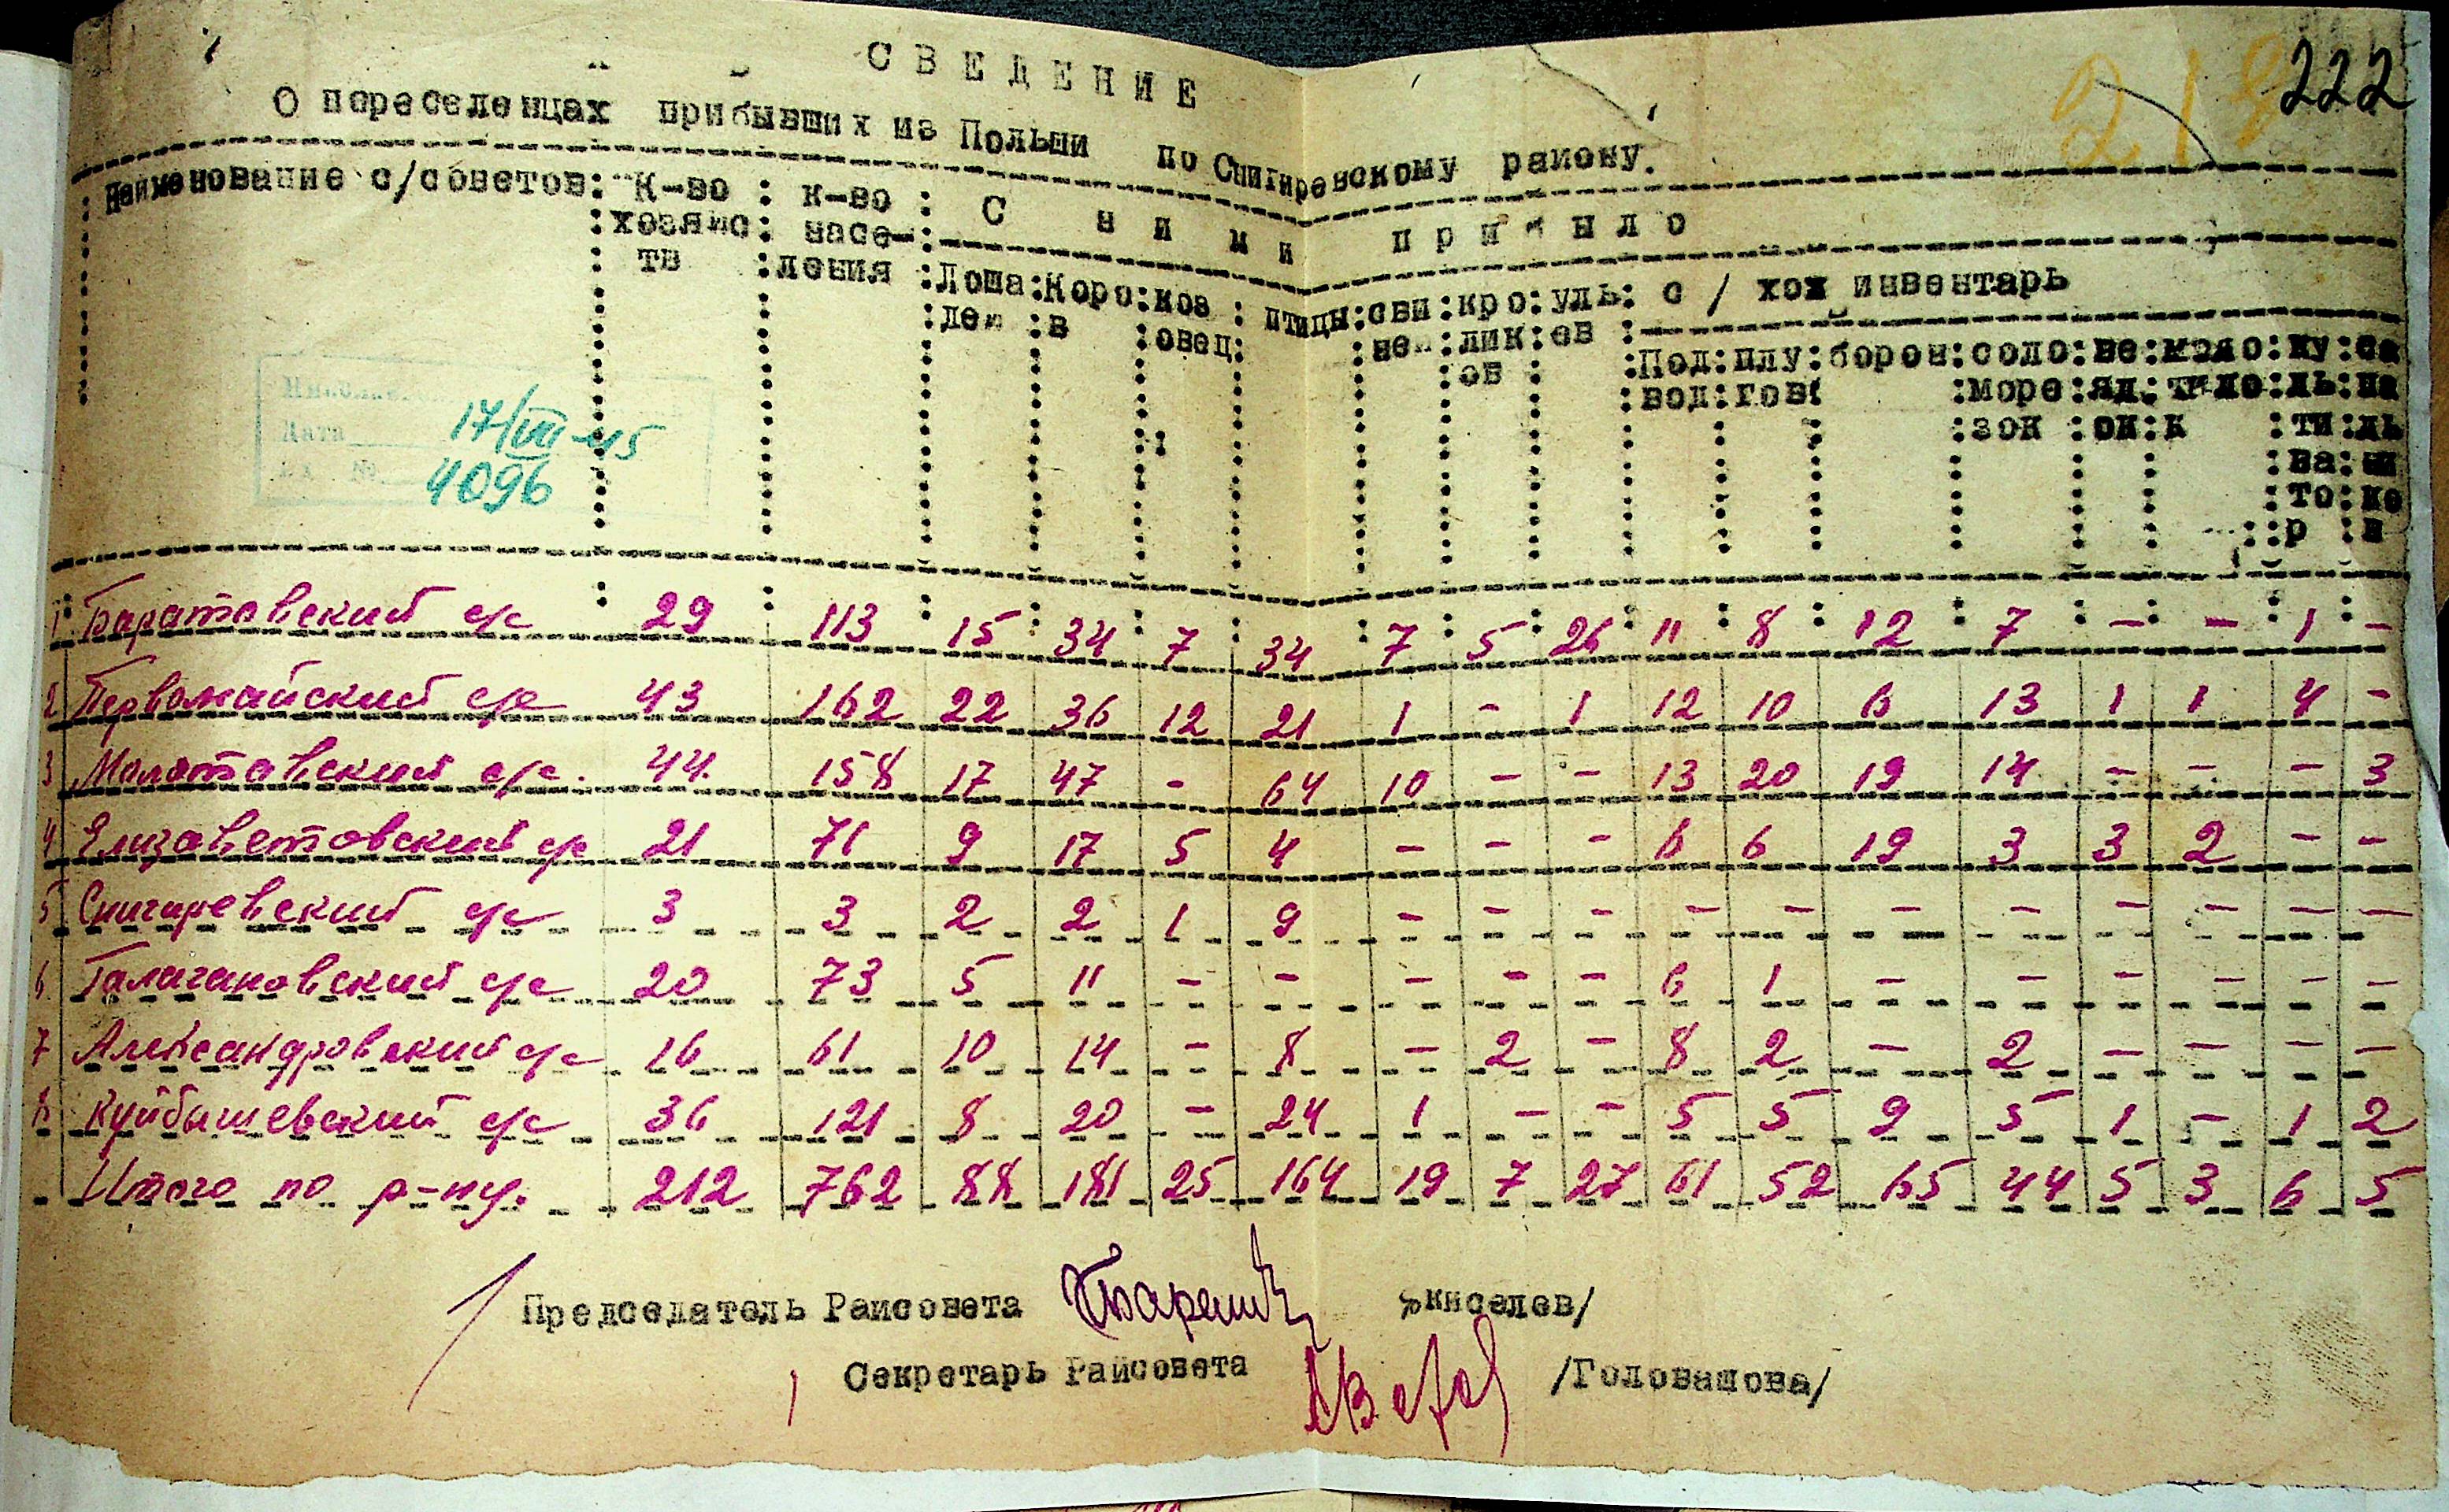 222
218
СВЕДЕНИЕ
О переселенцах прибывших из Польши по Снигиревскому району.
Наименование с/советов: К-во хозяйств : к-во населения : С ними прибыло
Лошадей : Коров : коз овец : птицы : свиней : кроликов : ульев : с / хоз инвентарь
Подвод : плугов : борон : соломорезок : веялок : молотилок : культиватор : сапальшиков
Дата 17/VIII-45
№ 4096
1 Баратовский с/с 29 113 15 34 7 34 7 5 26 11 8 12 7 - - 1 -
2 Первомайский с/с 43 162 22 36 12 21 1 - 1 12 10 6 13 1 1 4 -
3 Молотовский с/с. 44 158 17 47 - 64 10 - - 13 20 19 14 - - - 3
4 Елизаветовский с/с 21 71 9 17 5 4 - - - 6 6 19 3 3 2 - -
5 Снигиревский с/с 3 3 2 2 1 9 - - - - - - - - - - -
6 Галагановский с/с 20 73 5 11 - - - - - 6 1 - - - - - -
7 Александровский с/с 16 61 10 14 - 8 - 2 - 8 2 - 2 - - - -
8 Куйбышевский с/с 36 121 8 20 - 24 1 - - 5 5 9 5 1 - 1 2
Итого по р-ну. 212 762 88 181 25 164 19 7 27 61 52 65 44 5 3 6 5
Председатель Райсовета /Киселев/
Секретарь Райсовета /Головащова/